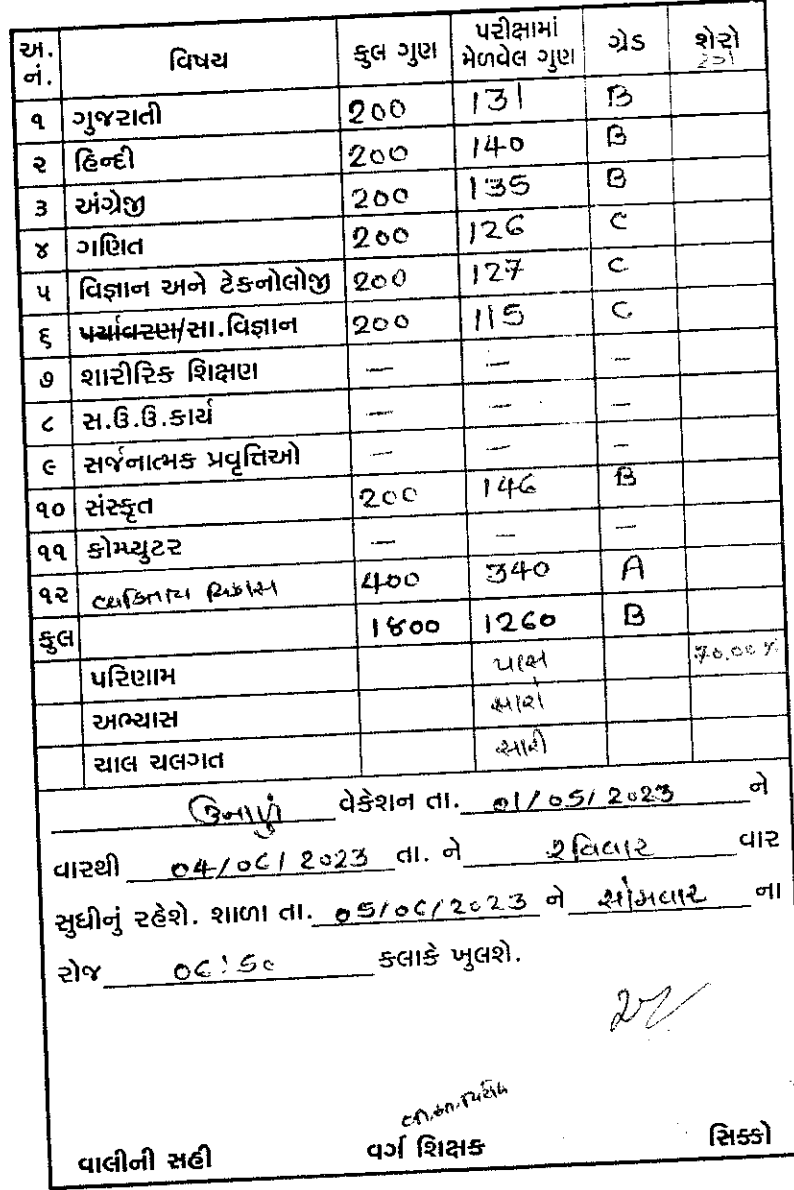 અ. નં. વિષય કુલ ગુણ પરીક્ષામાં મેળવેલ ગુણ ગ્રેડ શેરો
૧ ગુજરાતી 200 131 B
૨ હિન્દી 200 140 B
૩ અંગ્રેજી 200 135 B
૪ ગણિત 200 126 C
૫ વિજ્ઞાન અને ટેકનોલોજી 200 127 C
૬ પર્યાવરણ/સા.વિજ્ઞાન 200 115 C
૭ શારીરિક શિક્ષણ — — —
૮ સ.ઉ.ઉ.કાર્ય — — —
૯ સર્જનાત્મક પ્રવૃત્તિઓ — — —
૧૦ સંસ્કૃત 200 146 B
૧૧ કોમ્પ્યુટર — — —
૧૨ વ્યકિતત્વ વિકાસ 400 340 A
કુલ 1800 1260 B
પરિણામ પાસ 70.00 %
અભ્યાસ સારો
ચાલ ચલગત સારી
ઉનાળું વેકેશન તા. 01/05/2023 ને
વારથી 04/06/2023 તા. ને રવિવાર વાર
સુધીનું રહેશે. શાળા તા. 05/06/2023 ને સોમવાર ના
રોજ 06:50 કલાકે ખુલશે.
વાલીની સહી વર્ગ શિક્ષક સિક્કો